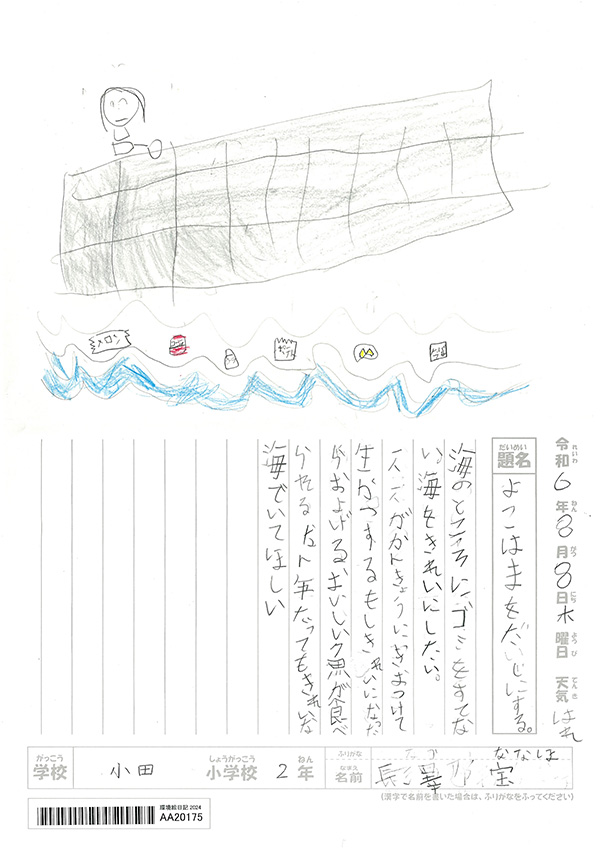 メロン
令和6年8月8日木曜日 天気はれ
れいわ ねん がつ にち よう び てん き
だいめい
題名
よこはまをだいじにする。
海のところにゴミをすてな
い。海をきれいにしたい。
一人一人がかんきょうにきおつけて
生かつするもしきれいになった
らおよげるおいしい魚が食べ
られる 年たってもきれいな
海でいてほしい
がっこう
学校
小田
しょうがっこう
小学校
2
ねん
年
ふりがな
なまえ
名前
ななほ
宝
(漢字で名前を書いた場合は、ふりがなをふってください)
環境絵日記 2024
AA20175